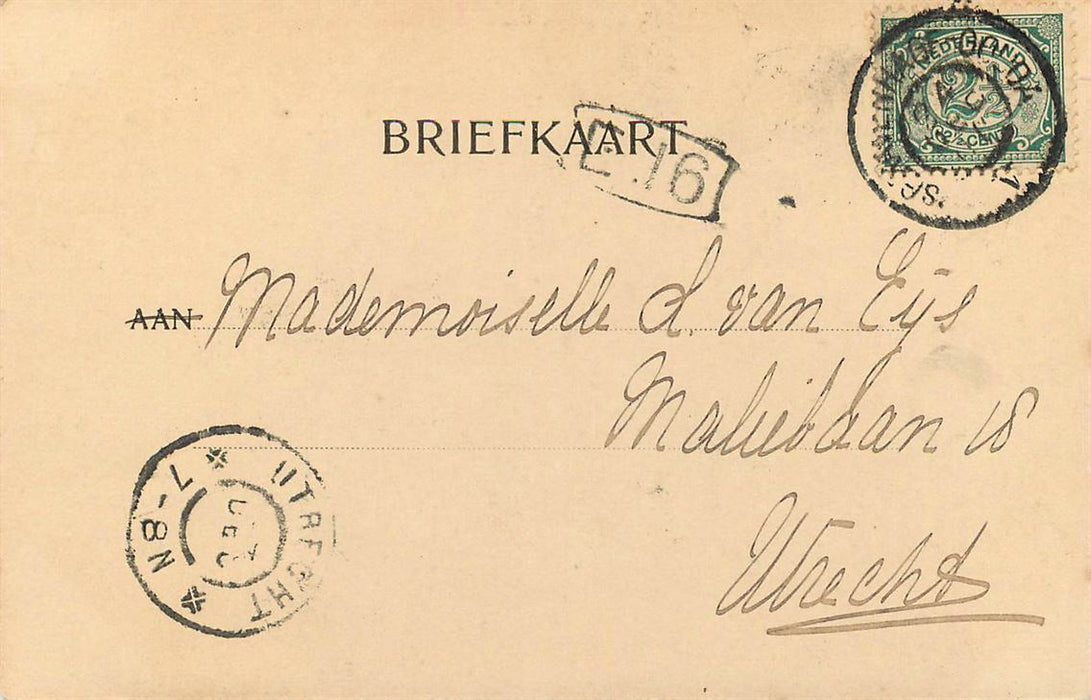 NEDERLAND
2½
2½ CENT
BRIEFKAART
E.16
AAN Mademoiselle L. van Eijs
Maliebaan 18
Utrecht
UTRECHT
7-8N
DEC